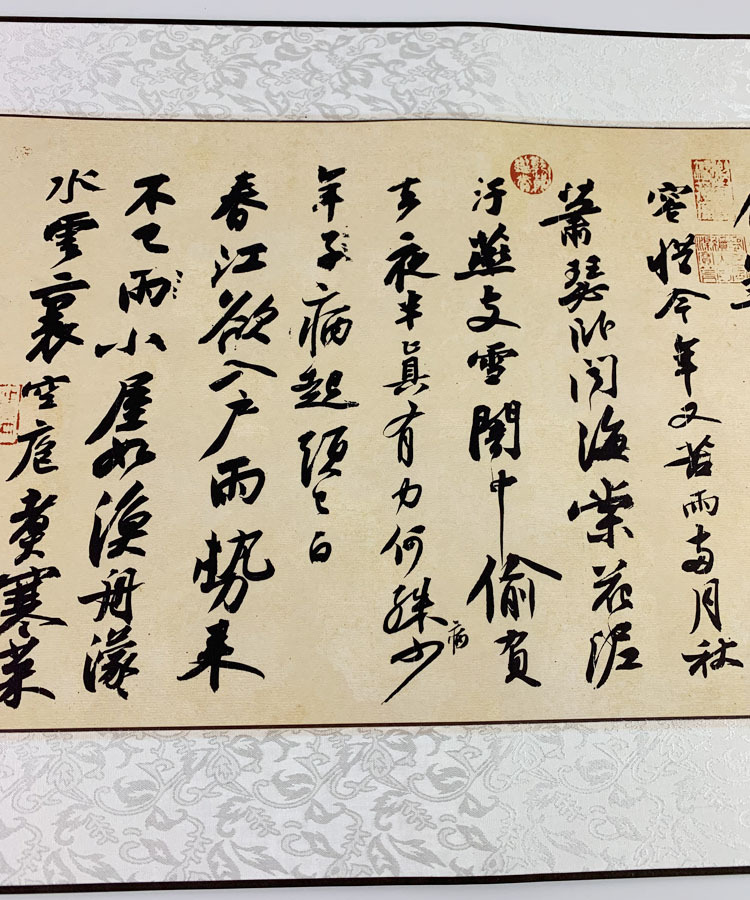 容惜今年又苦雨兩月秋
蕭瑟臥聞海棠花泥
汙燕支雪闇中偷負
去夜半真有力何殊病少
年子病起頭已白
春江欲入戶雨勢來
不已雨小屋如漁舟濛々
水雲裏空庖煮寒菜